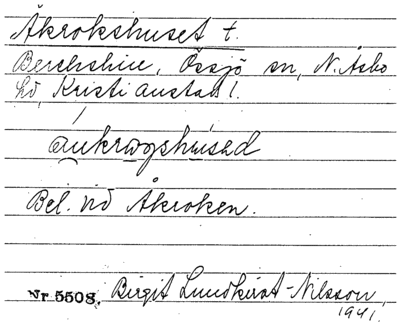 Åkrokshuset t.
Berchshire, Össjö sn, N. Åsbo
hd, Kristianstad l.
aukrogshused
Bel. vid Åkroken.
Nr 5508. Birgit Lundkvist-Nilsson
1941.